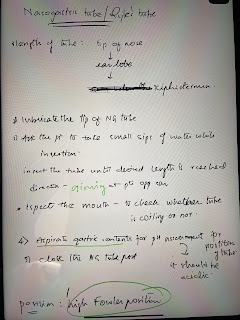 Nasogastric tube / Ryle's tube
*length of tube : tip of nose
↓
ear lobe
↓
xiphisternum
* lubricate the tip of NG tube
2) Ask the pt to take small sips of water while
insertion.
insert the tube until desired length is reached
direction - aiming at pts opp ear
* Inspect the mouth - to check whether tube
is coiling or not.
4) Aspirate gastric contents for pH assessment for
position
of tube
5) close the NG tube port
it should be
acidic.
position : high Fowler position